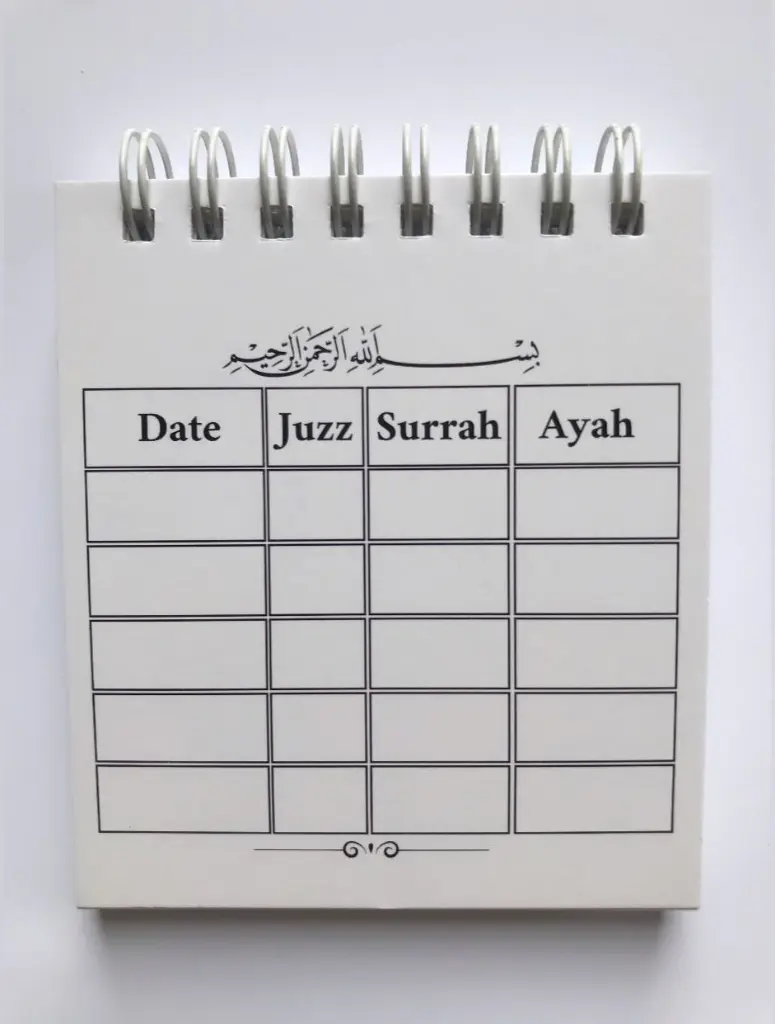 بِسْمِ اللهِ الرَّحْمٰنِ الرَّحِيْمِ
Date Juzz Surrah Ayah